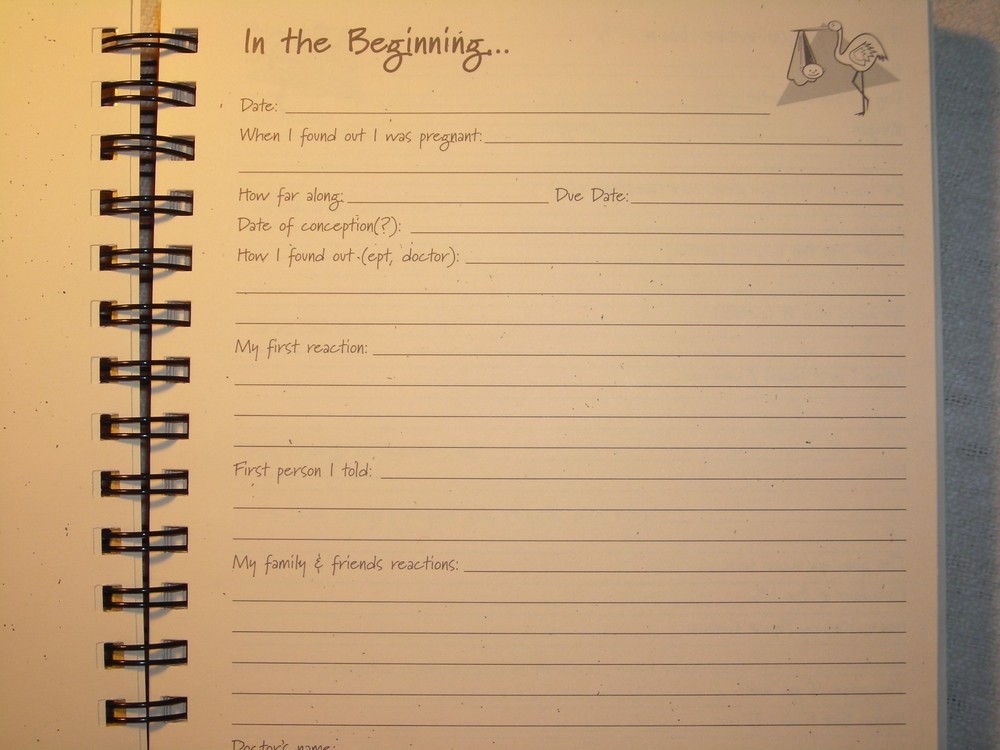 In the Beginning...
Date:
When I found out I was pregnant:
How far along: Due Date:
Date of conception(?):
How I found out (ept, doctor):
My first reaction:
First person I told:
My family & friends reactions:
Doctor's name: